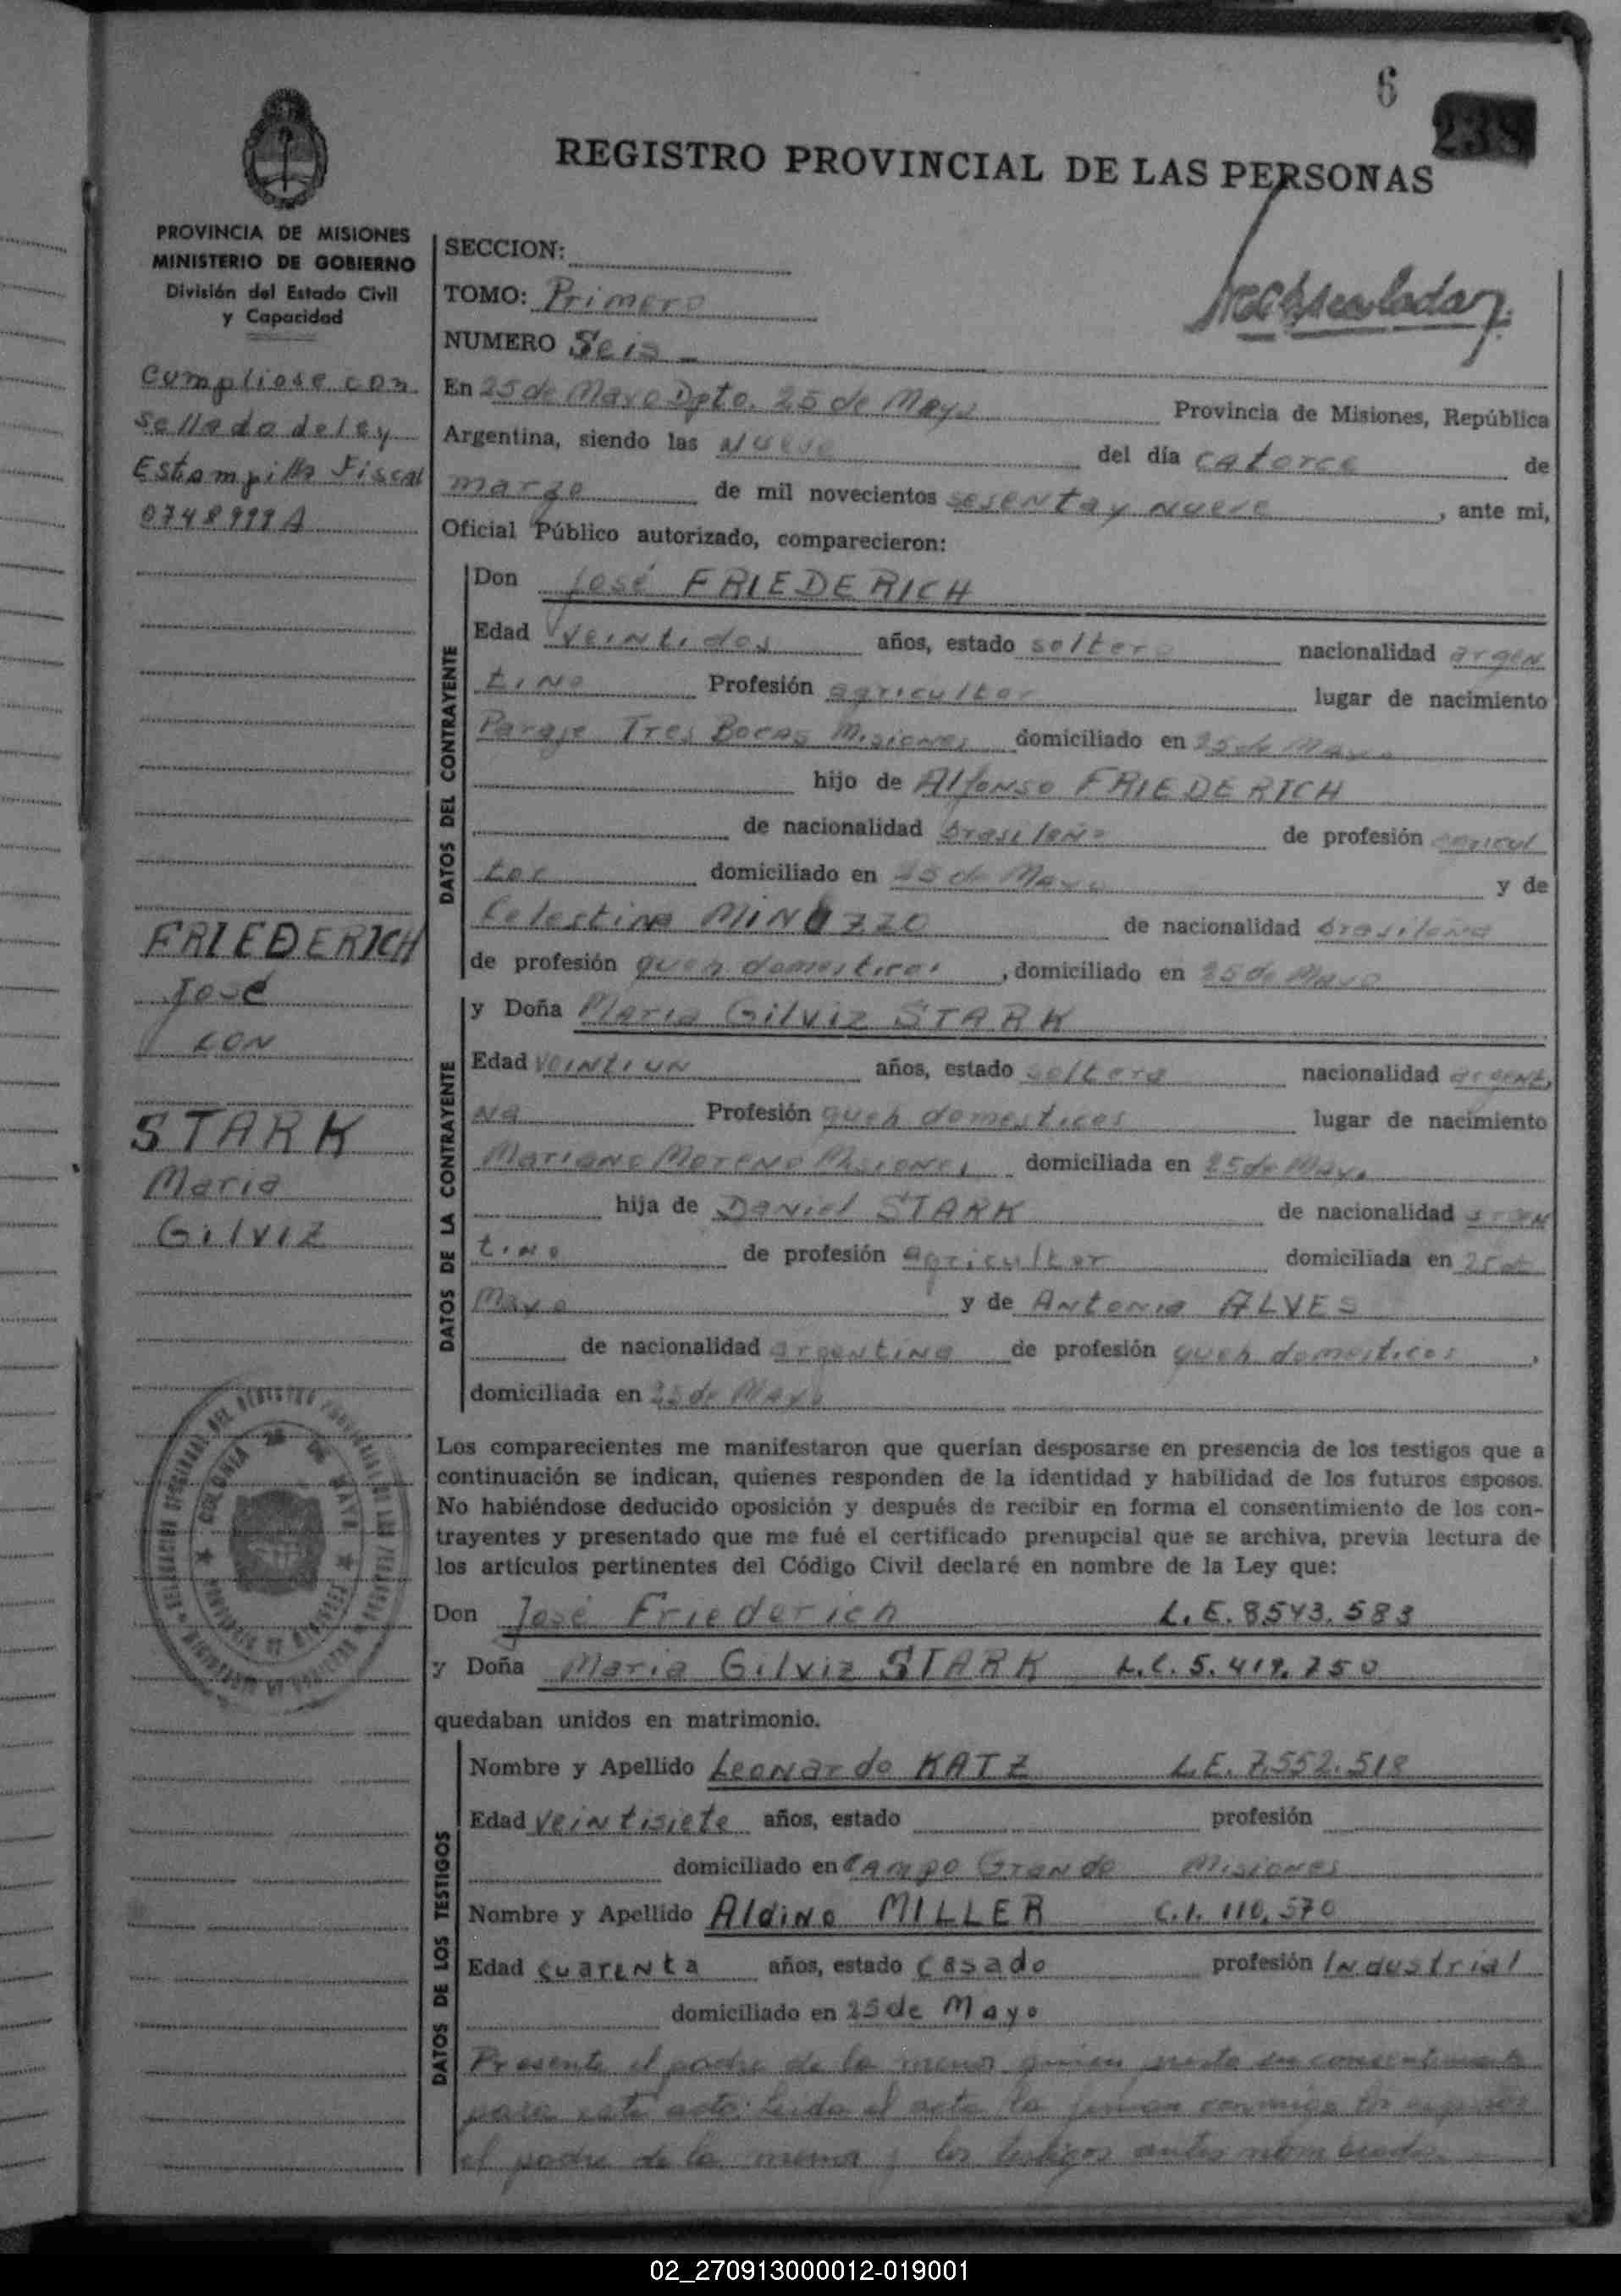 6
238
REGISTRO PROVINCIAL DE LAS PERSONAS
PROVINCIA DE MISIONES
MINISTERIO DE GOBIERNO
División del Estado Civil
y Capacidad
Cumpliose con
sellado de ley
Estampilla Fiscal
SECCION:
TOMO: Primero
NUMERO Seis
En 25 de Mayo Dpto. 25 de Mayo Provincia de Misiones, República
Argentina, siendo las Nueve del día catorce de
marzo de mil novecientos sesenta y Nueve, ante mi,
Oficial Público autorizado, comparecieron:
DATOS DEL CONTRAYENTE
Don José FRIEDERICH
Edad Veintidos años, estado soltero nacionalidad argen
tino Profesión agricultor lugar de nacimiento
Paraje Tres Bocas Misiones domiciliado en 25 de Mayo
hijo de Alfonso FRIEDERICH
de nacionalidad brasileño de profesión agricul
tor domiciliado en 25 de Mayo y de
Celestina de nacionalidad brasileña
de profesión queh domesticos, domiciliado en 25 de Mayo
FRIEDERICH
José
CON
STARK
Maria
Gilviz
DATOS DE LA CONTRAYENTE
y Doña Maria Gilviz STARK
Edad veintiun años, estado soltera nacionalidad argenti
na Profesión queh domesticos lugar de nacimiento
Mariano Moreno Misiones domiciliada en 25 de Mayo
hija de Daniel STARK de nacionalidad argen
tino de profesión agricultor domiciliada en 25 de
Mayo y de Antonia ALVES
de nacionalidad argentina de profesión queh domesticos,
domiciliada en 25 de Mayo
Los comparecientes me manifestaron que querían desposarse en presencia de los testigos que a
continuación se indican, quienes responden de la identidad y habilidad de los futuros esposos.
No habiéndose deducido oposición y después de recibir en forma el consentimiento de los con-
trayentes y presentado que me fué el certificado prenupcial que se archiva, previa lectura de
los artículos pertinentes del Código Civil declaré en nombre de la Ley que:
Don José Friederich L.E. 8543.583
y Doña Maria Gilviz STARK L.C. 5.419.250
quedaban unidos en matrimonio.
COLONIA 25 DE MAYO
PROVINCIA DE MISIONES
DATOS DE LOS TESTIGOS
Nombre y Apellido Leonardo KATZ L.E. 7.552.518
Edad veintisiete años, estado profesión
domiciliado en Campo Grande Misiones
Nombre y Apellido Aldino MILLER C.I. 110.570
Edad cuarenta años, estado casado profesión Industrial
domiciliado en 25 de Mayo
Presente el padre de la menor quien presta su consentimiento
para este acto. Leida el acta la firman conmigo los esposos
el padre de la menor y los testigos antes nombrados.
02_270913000012-019001